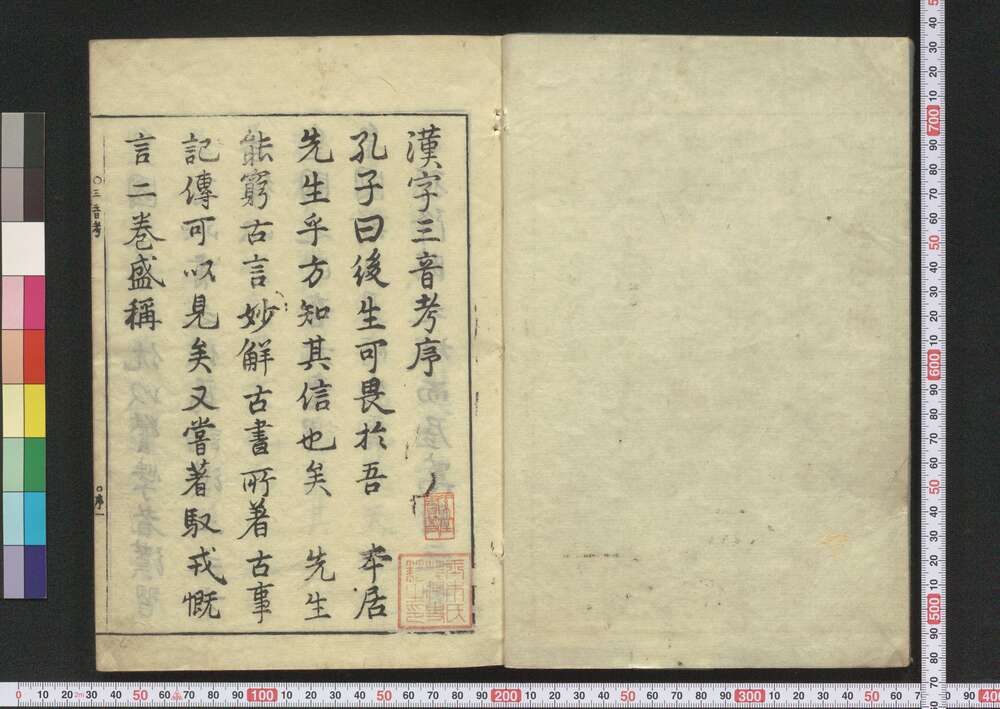 漢字三音考序
孔子曰後生可畏於吾 本居
先生乎方知其信也矣 先生
能窮古言妙解古書所著古事
記傳可以見矣又嘗著馭戎慨
言二卷盛稱
三音考
序一